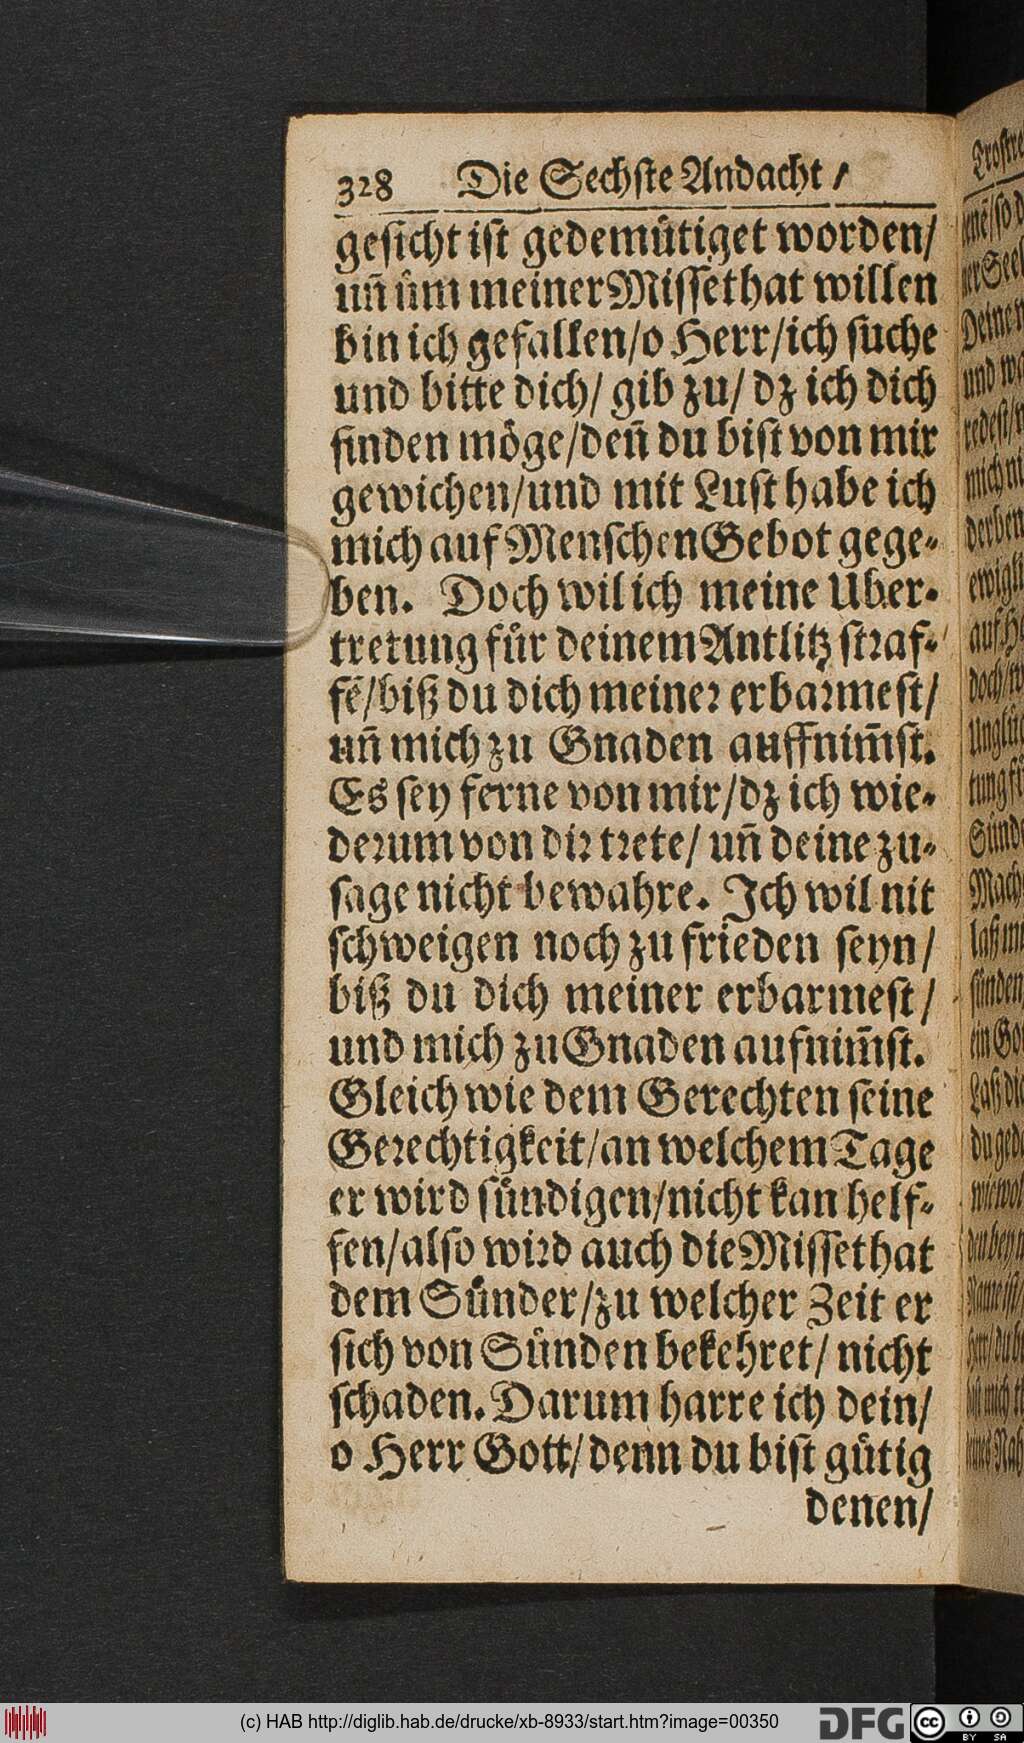 328 Die Sechste Andacht /
gesicht ist gedemütiget worden/
uñ üm meiner Missethat willen
bin ich gefallen/o Herr/ich suche
und bitte dich/ gib zu/ dz ich dich
finden möge/deñ du bist von mir
gewichen/und mit Lust habe ich
mich auf Menschen Gebot gege-
ben. Doch wil ich meine Uber-
tretung für deinem Antlitz straf-
fē/biß du dich meiner erbarmest/
uñ mich zu Gnaden auffnim̄st.
Es sey ferne von mir/dz ich wie-
derum von dir trete/ uñ deine zu-
sage nicht bewahre. Ich wil nit
schweigen noch zu frieden seyn/
biß du dich meiner erbarmest/
und mich zu Gnaden aufnim̄st.
Gleich wie dem Gerechten seine
Gerechtigkeit/an welchem Tage
er wird sündigen/nicht kan helf-
fen/also wird auch die Missethat
dem Sünder/zu welcher Zeit er
sich von Sünden bekehret/ nicht
schaden. Darum harre ich dein/
o Herr Gott/denn du bist gütig
denen/
(c) HAB http://diglib.hab.de/drucke/xb-8933/start.htm?image=00350
DFG cc BY SA